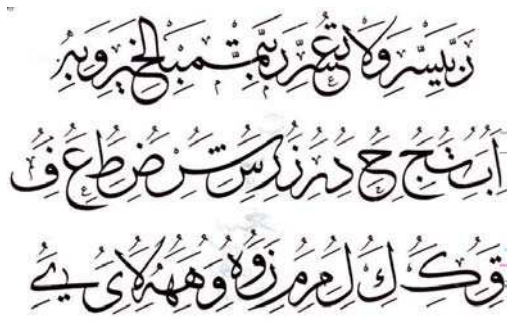 رَبِّ يَسِّرْ وَلَا تُعَسِّرْ رَبِّ تَمِّمْ بِالْخَيْرِ وَبِهِ
اَ بُ تُ جُ حُ دُ رُ زُ سُ شُ ضُ طُ عُ فُ
قُ كُ لُ مُ زُ وُ هُ وُ هُ هُ لَا يُ ے